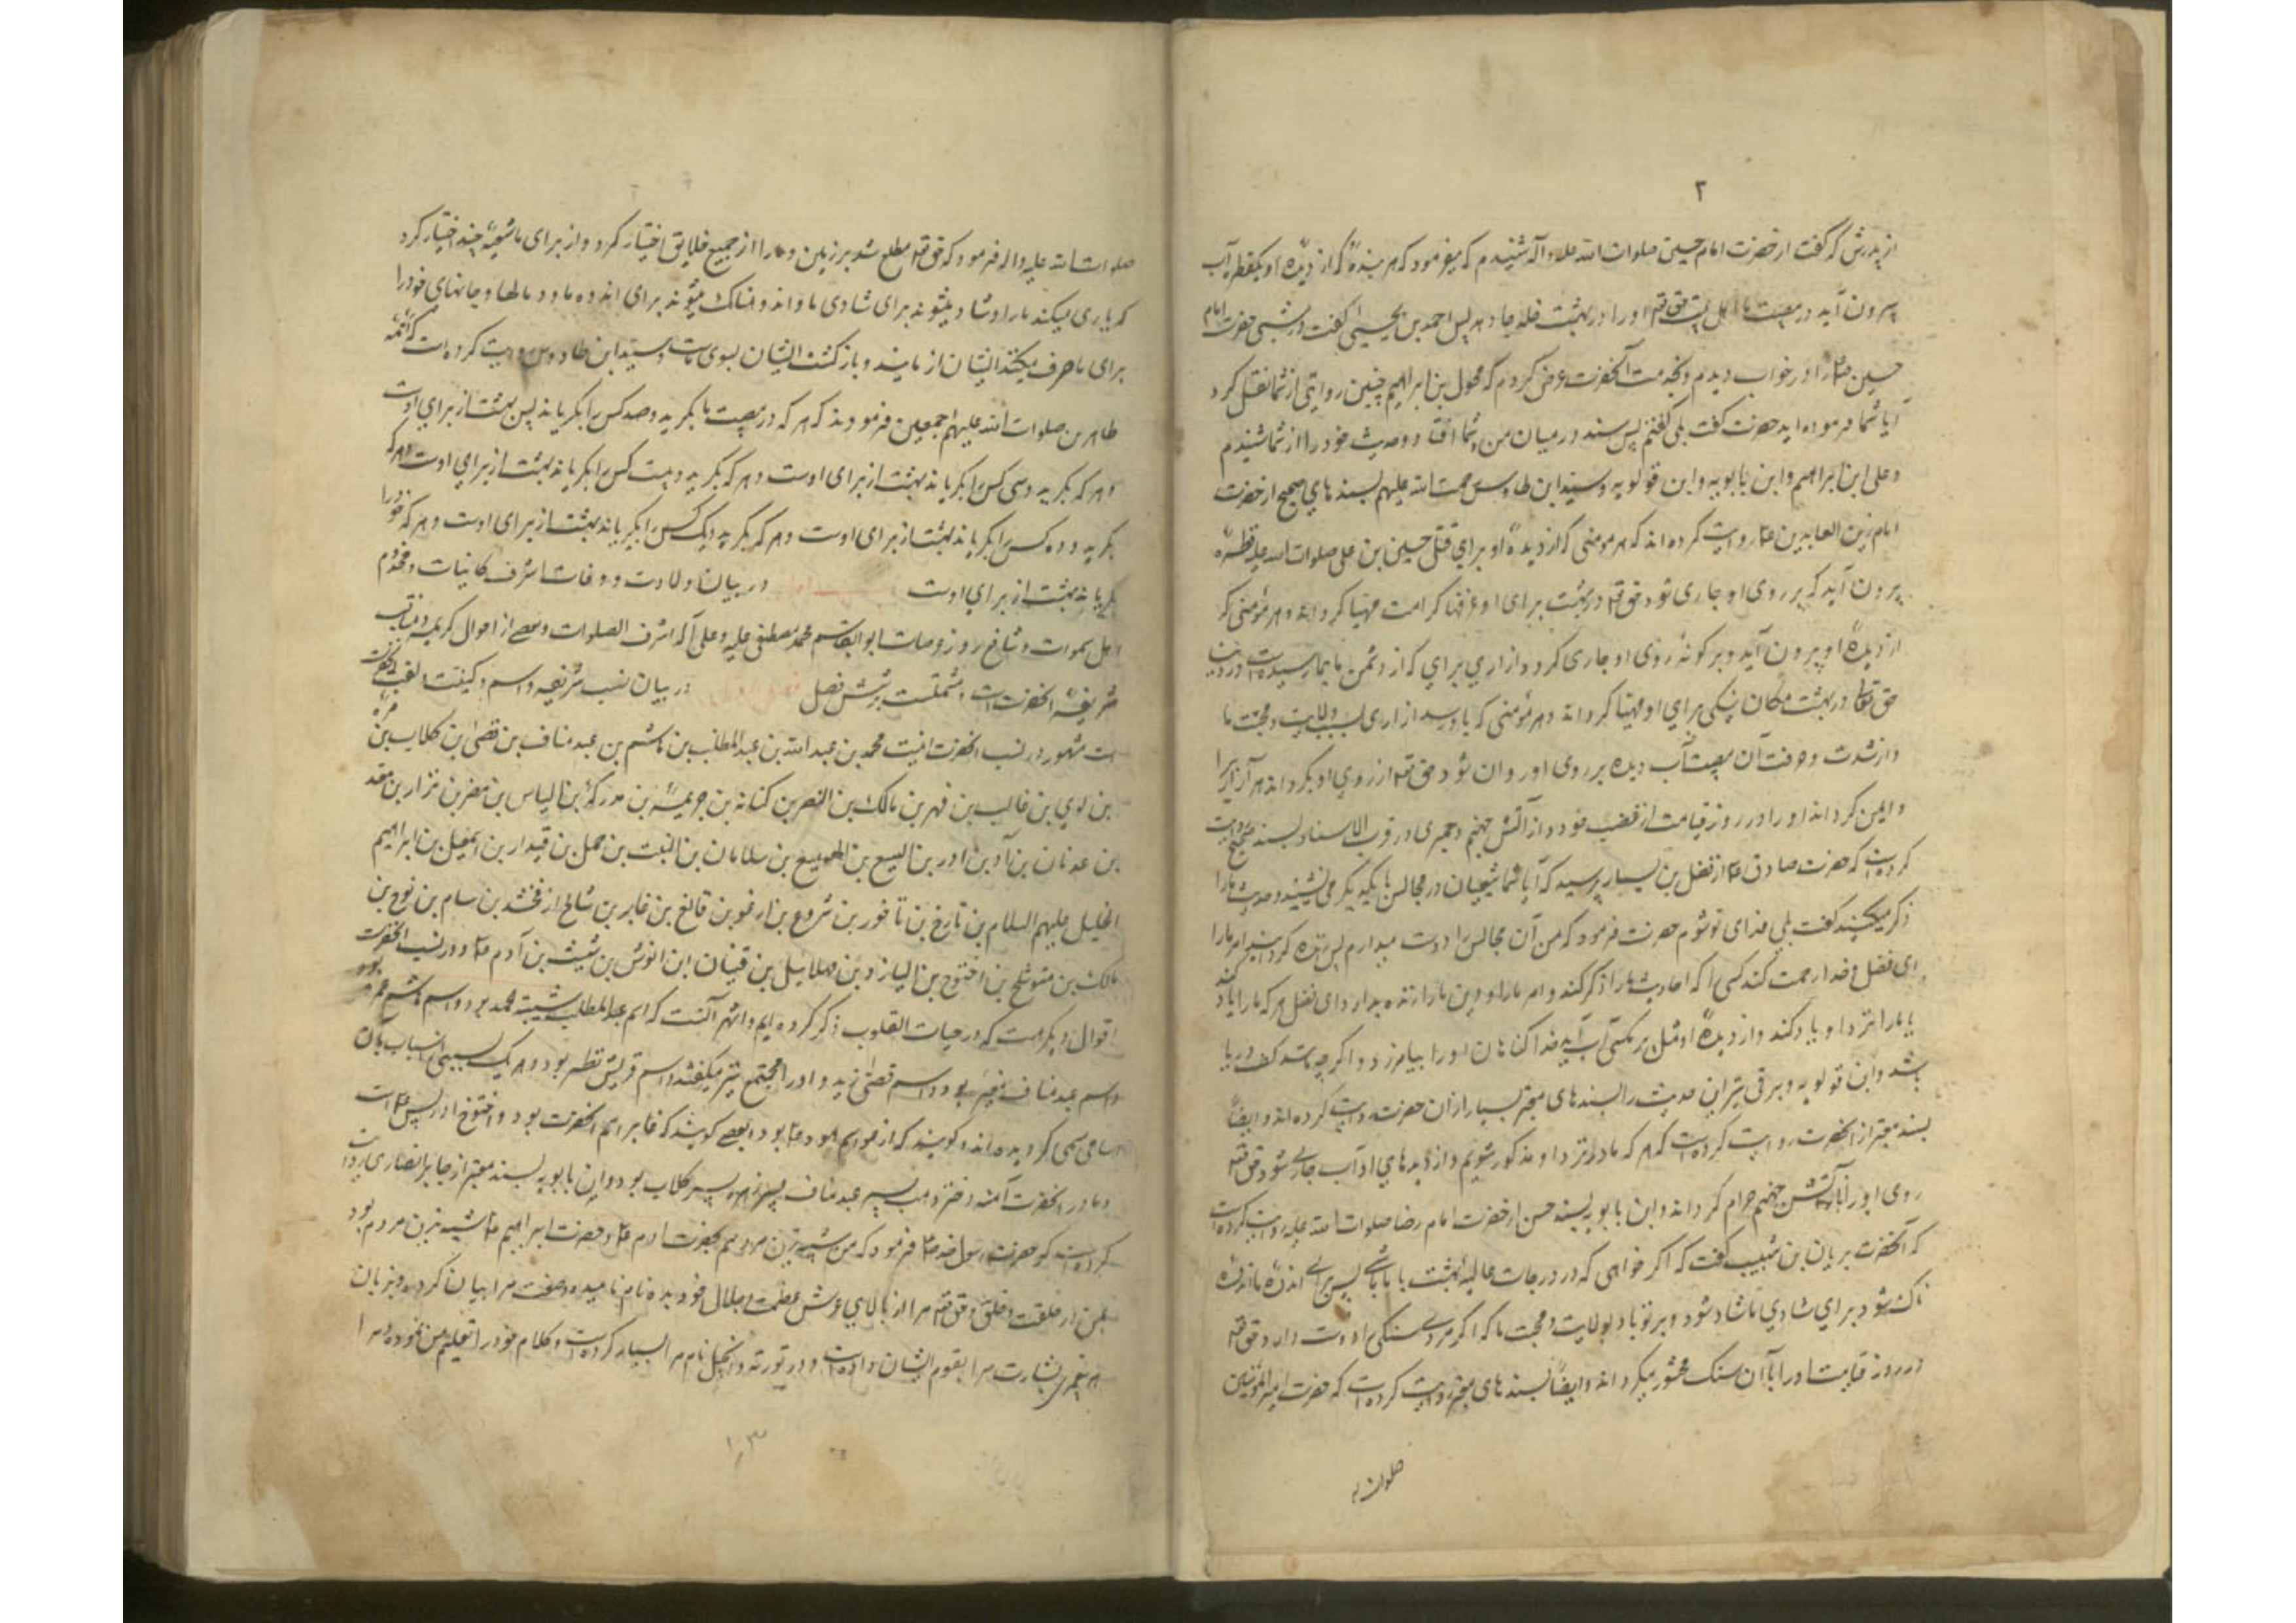 ۲
از پدرش که گفت از حضرت امام حسین صلوات الله علیه و آله شنیدم که میفرمود که هر بندهٔ که از دیدهٔ او یکقطره آب
بیرون آید در مصیبت ما اهل بیت حق تعالی او را در بهشت خلد جا دهد پس احمد بن یحیی گفت در شبی حضرت امام
حسین را در خواب دیدم و بخدمت آنحضرت عرض کردم که مخول بن ابراهیم چنین روایتی از شما نقل کرد
آیا شما فرموده اید حضرت گفت بلی گفتم پس سند در میان من و شما افتاد و حدیث خود را از شما شنیدم
و علی ابن ابراهیم و ابن بابویه و ابن قولویه و سید ابن طاوس رحمت الله علیهم بسند های صحیح از حضرت
امام زین العابدین ع روایت کرده اند که هر مومنی که از دیدهٔ او برای قتل حسین بن علی صلوات الله علیه قطرهٔ
بیرون آید که بر روی او جاری شود حق تعالی در بهشت برای او غرفها کرامت مهیا گرداند و هر مؤمنی که
از دیدهٔ او بیرون آید و بر گونهٔ روی او جاری گردد از آزاری برای که از دشمن ما بما رسیده است در دنیا
حق تعالی در بهشت مکان نیکی برای او مهیا گرداند و هر مؤمنی که باو رسد آزاری بسبب ولایت و محبت ما
و از شدت و حرقت آن مصیبت آب دیده بر روی او روان شود حق تعالی از روی او بگرداند هر آزاریرا
و ایمن گرداند او را در روز قیامت از غضب خود و از آتش جهنم و حمیری در قرب الاسناد بسند صحیح روایت
کرده است که حضرت صادق ع از فضل بن یسار پرسید که آیا شما شیعیان در مجالس با یکدیگر می نشینید و حدیث ما را
ذکر میکنید گفت بلی فدای تو شوم حضرت فرمود که من آن مجالس را دوست میدارم پس زنده کردانید امر ما را
ای فضل خدا رحمت کند کسی را که احادیث ما را ذکر کند و امر ما را و دین ما را زنده بدارد ای فضل هر که ما را یاد کند
یا ما را نزد او یاد کند و از دیدهٔ او مثل پر مگسی آب آید خدا گناهان او را بیامرزد و اگر چه مانند کف دریا
باشد و ابن قولویه و برقی نیز این حدیث را بسندهای معتبر بسیار از آن حضرت روایت کرده اند و ایضاً
بسند معتبر از آنحضرت روایت کرده است که هر که ما در نزد او مذکور شویم و از دیدهای او آب جاری شود حق تعالی
روی او را بر آتش جهنم حرام گرداند و ابن بابویه بسند حسن از حضرت امام رضا صلوات الله علیه روایت کرده است
که آنحضرت بریان بن شبیب گفت که اگر خواهی که در درجات عالیه بهشت با ما باشی پس برای اندوه ما اندوه
ناک شو و برای شادی ما شاد شو و بر تو باد بولایت و محبت ما که اگر مردی سنگی را دوست دارد حق تعالی
در روز قیامت او را با آن سنگ محشور میگرداند و ایضاً بسندهای معتبر روایت کرده است که حضرت امیر المؤمنین
صلوات
صلوات الله علیه و اله فرمود که حق تعالی مطلع شد بر زمین و ما را از جمیع خلایق اختیار کرد و از برای ما شیعهٔ چند اختیار کرد
که یاری میکنند ما را و شاد میشوند برای شادی ما و اندوهناک میشوند برای اندوه ما و مالها و جانهای خود را
برای ما صرف میکنند ایشان از مایند و بازگشت ایشان بسوی ماست و سید ابن طاوس روایت کرده است که ائمهٔ
طاهرین صلوات الله علیهم اجمعین فرمودند که هر که در مصیبت ما بگرید و صد کس را بگریاند پس بهشت از برای اوست
و هر که بگرید و سی کس را بگریاند بهشت از برای اوست و هر که بگرید و بیست کس را بگریاند بهشت از برای اوست و هر که
بگرید و ده کس را بگریاند بهشت از برای اوست و هر که بگرید و یک کس را بگریاند بهشت از برای اوست و هر که خود را
بگریاند بهشت از برای اوست در بیان ولادت و وفات اشرف کاینات و مخدوم
اهل سموات و شافع روز عرصات ابوالقاسم محمد مصطفی علیه و علی آله اشرف الصلوات و بعضی از احوال کریمه و مناقب
شریفهٔ آنحضرت است و مشتملست بر شش فصل فصل اول در بیان نسب شریف و اسم و کنیت و لقب آنحضرت
است مشهور در نسب آنحضرت اینست محمد بن عبد الله بن عبد المطلب بن هاشم بن عبد مناف بن قصی بن کلاب بن مرة
بن لوي بن غالب بن فهر بن مالک بن النضر بن کنانه بن خزیمة بن مدرکة بن الیاس بن مضر بن نزار بن معد
بن عدنان بن آد بن ادر بن الیسع بن الهمیسع بن سلامان بن النبت بن حمل بن قیدار بن اسمعیل بن ابراهیم
الخلیل علیهم السلام بن تارخ بن ناخور بن شروع بن ارغو بن فالغ بن غابر بن شالخ ارفخشد بن سام بن نوح بن
مالک بن متوشلخ بن اخنوخ بن الیازد بن مهلاییل بن قینان ابن انوش بن شیث بن آدم ع و در نسب آنحضرت
اقوال دیگر هست که در حیات القلوب ذکر کرده ایم و اشهر آنست که اسم عبدالمطلب شیبة الحمد بود و اسم هاشم عمرو بود
و اسم عبد مناف مغیره بود و اسم قصی زید و او را مجتمع نیز میگفتند و اسم قریش نضر بود و هر یک بسببی از اسباب بآن
اسامی مسمی گردیده اند و گویند که ارغو اسم هود ع بود و بعضی گویند که غابر اسم آنحضرت بود و اخنوخ ادریس ع است
و مادر آنحضرت آمنه دختر وهب پسر عبد مناف پسر زهره پسر کلاب بود و ابن بابویه بسند معتبر از جابر انصاری روایت
کرده است که حضرت رسول خدا فرمود که من شبیه ترین مردمم بحضرت آدم ع و حضرت ابراهیم ع شبیه ترین مردم بود
بمن در خلقت و خلق و حق تعالی مرا از بالای عرش عظمت و جلال خود بده نام نامیده و صفت مرا بیان کرده و بزبان
هر پیغمبری بشارت مرا بقوم ایشان داده است و در توریة و انجیل نام مرا بسیار کرده است و کلام خود را تعلیم من نموده و مرا